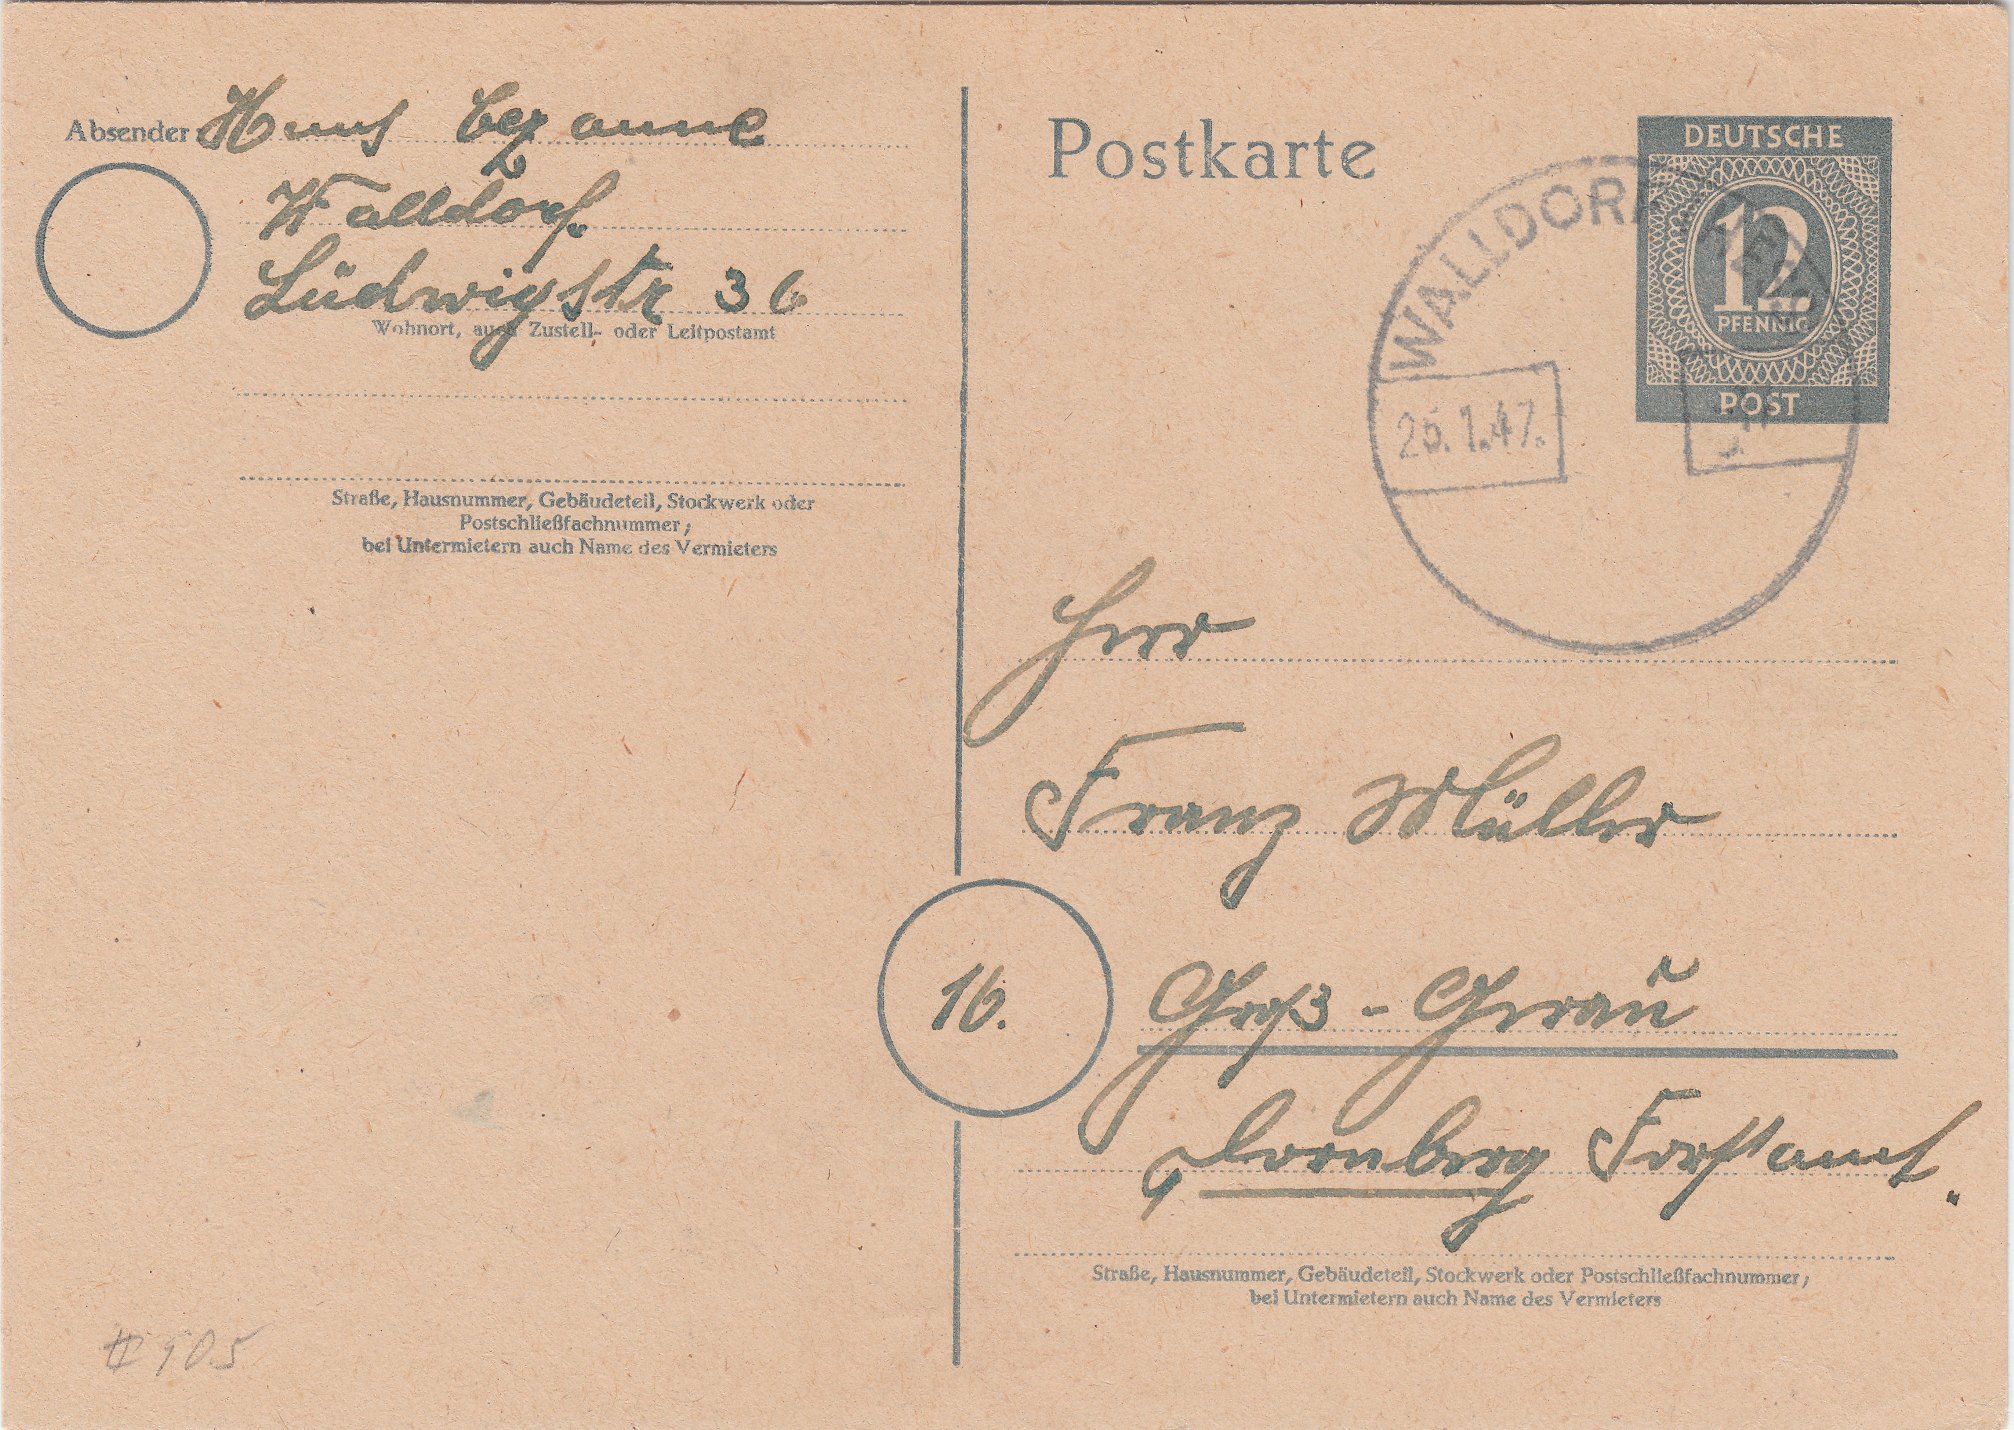 Absender: Hans Cezanne
Walldorf.
Ludwigstr 36
Wohnort, auch Zustell- oder Leitpostamt
Straße, Hausnummer, Gebäudeteil, Stockwerk oder
Postschließfachnummer;
bei Untermietern auch Name des Vermieters
Postkarte
DEUTSCHE
12
PFENNIG
POST
WALLDORF
26.1.47.
Herr
Franz Müller
16.
Groß-Gerau
Dornberg Forstamt.
Straße, Hausnummer, Gebäudeteil, Stockwerk oder Postschließfachnummer;
bei Untermietern auch Name des Vermieters